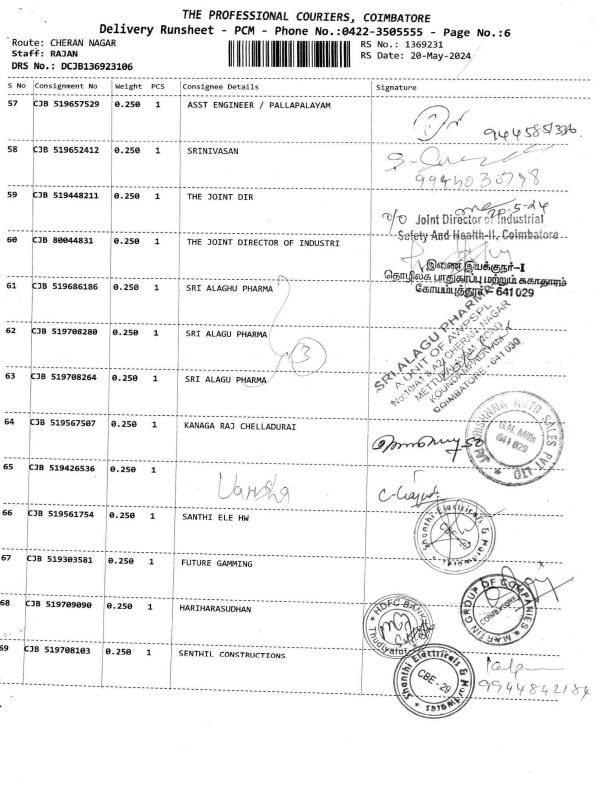 THE PROFESSIONAL COURIERS, COIMBATORE
Delivery Runsheet - PCM - Phone No.:0422-3505555 - Page No.:6
Route: CHERAN NAGAR
Staff: RAJAN
DRS No.: DCJB136923106
RS No.: 1369231
RS Date: 20-May-2024
S No Consignment No Weight PCS Consignee Details Signature
57 CJB 519657529 0.250 1 ASST ENGINEER / PALLAPALAYAM
58 CJB 519652412 0.250 1 SRINIVASAN
9944030748
59 CJB 519448211 0.250 1 THE JOINT DIR
20-5-24
O/O Joint Director of Industrial
Safety And Health-II, Coimbatore
60 CJB 80044831 0.250 1 THE JOINT DIRECTOR OF INDUSTRI
இணை இயக்குநர்-I
தொழிலக பாதுகாப்பு மற்றும் சுகாதாரம்
கோயம்புத்தூர் - 641 029
61 CJB 519686186 0.250 1 SRI ALAGHU PHARMA
62 CJB 519708280 0.250 1 SRI ALAGU PHARMA
3
63 CJB 519708264 0.250 1 SRI ALAGU PHARMA
SRI ALAGU PHARMA
A UNIT OF AWPSPL
No:10/A1 & A2, CHERAN NAGAR
METTUPALAYAM ROAD
KOUNDAMPALAYAM
COIMBATORE - 641 030
64 CJB 519567507 0.250 1 KANAGA RAJ CHELLADURAI
AUTO SALES PVT LTD
G.N. Mills
641 029
65 CJB 519426536 0.250 1
Varsha
66 CJB 519561754 0.250 1 SANTHI ELE HW
Shanthi Electricals & Hardwares
67 CJB 519303581 0.250 1 FUTURE GAMMING
MARTIN GROUP OF COMPANIES
COIMBATORE
68 CJB 519709090 0.250 1 HARIHARASUDHAN
HDFC BANK
69 CJB 519708103 0.250 1 SENTHIL CONSTRUCTIONS
Shanthi Electricals & Hardwares
CBE - 29
9944842184